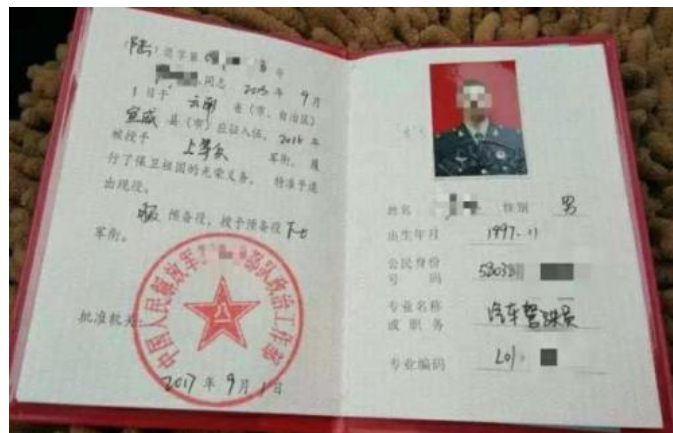 (陆)退字第 号
同志 2015 年 9 月
1 日于 云南 省(市、自治区)
宣威 县(市)应征入伍。2016 年
被授予 上等兵 军衔。履
行了保卫祖国的光荣义务。特准予退
出现役。
服 预备役,授予预备役 下士
军衔。
批准机关:
中国人民解放军 部队政治工作部
2017 年 9 月 1 日
姓名 性别 男
出生年月 1997.11
公民身份
号 码
专业名称 汽车驾驶员
或 职 务
专业编码